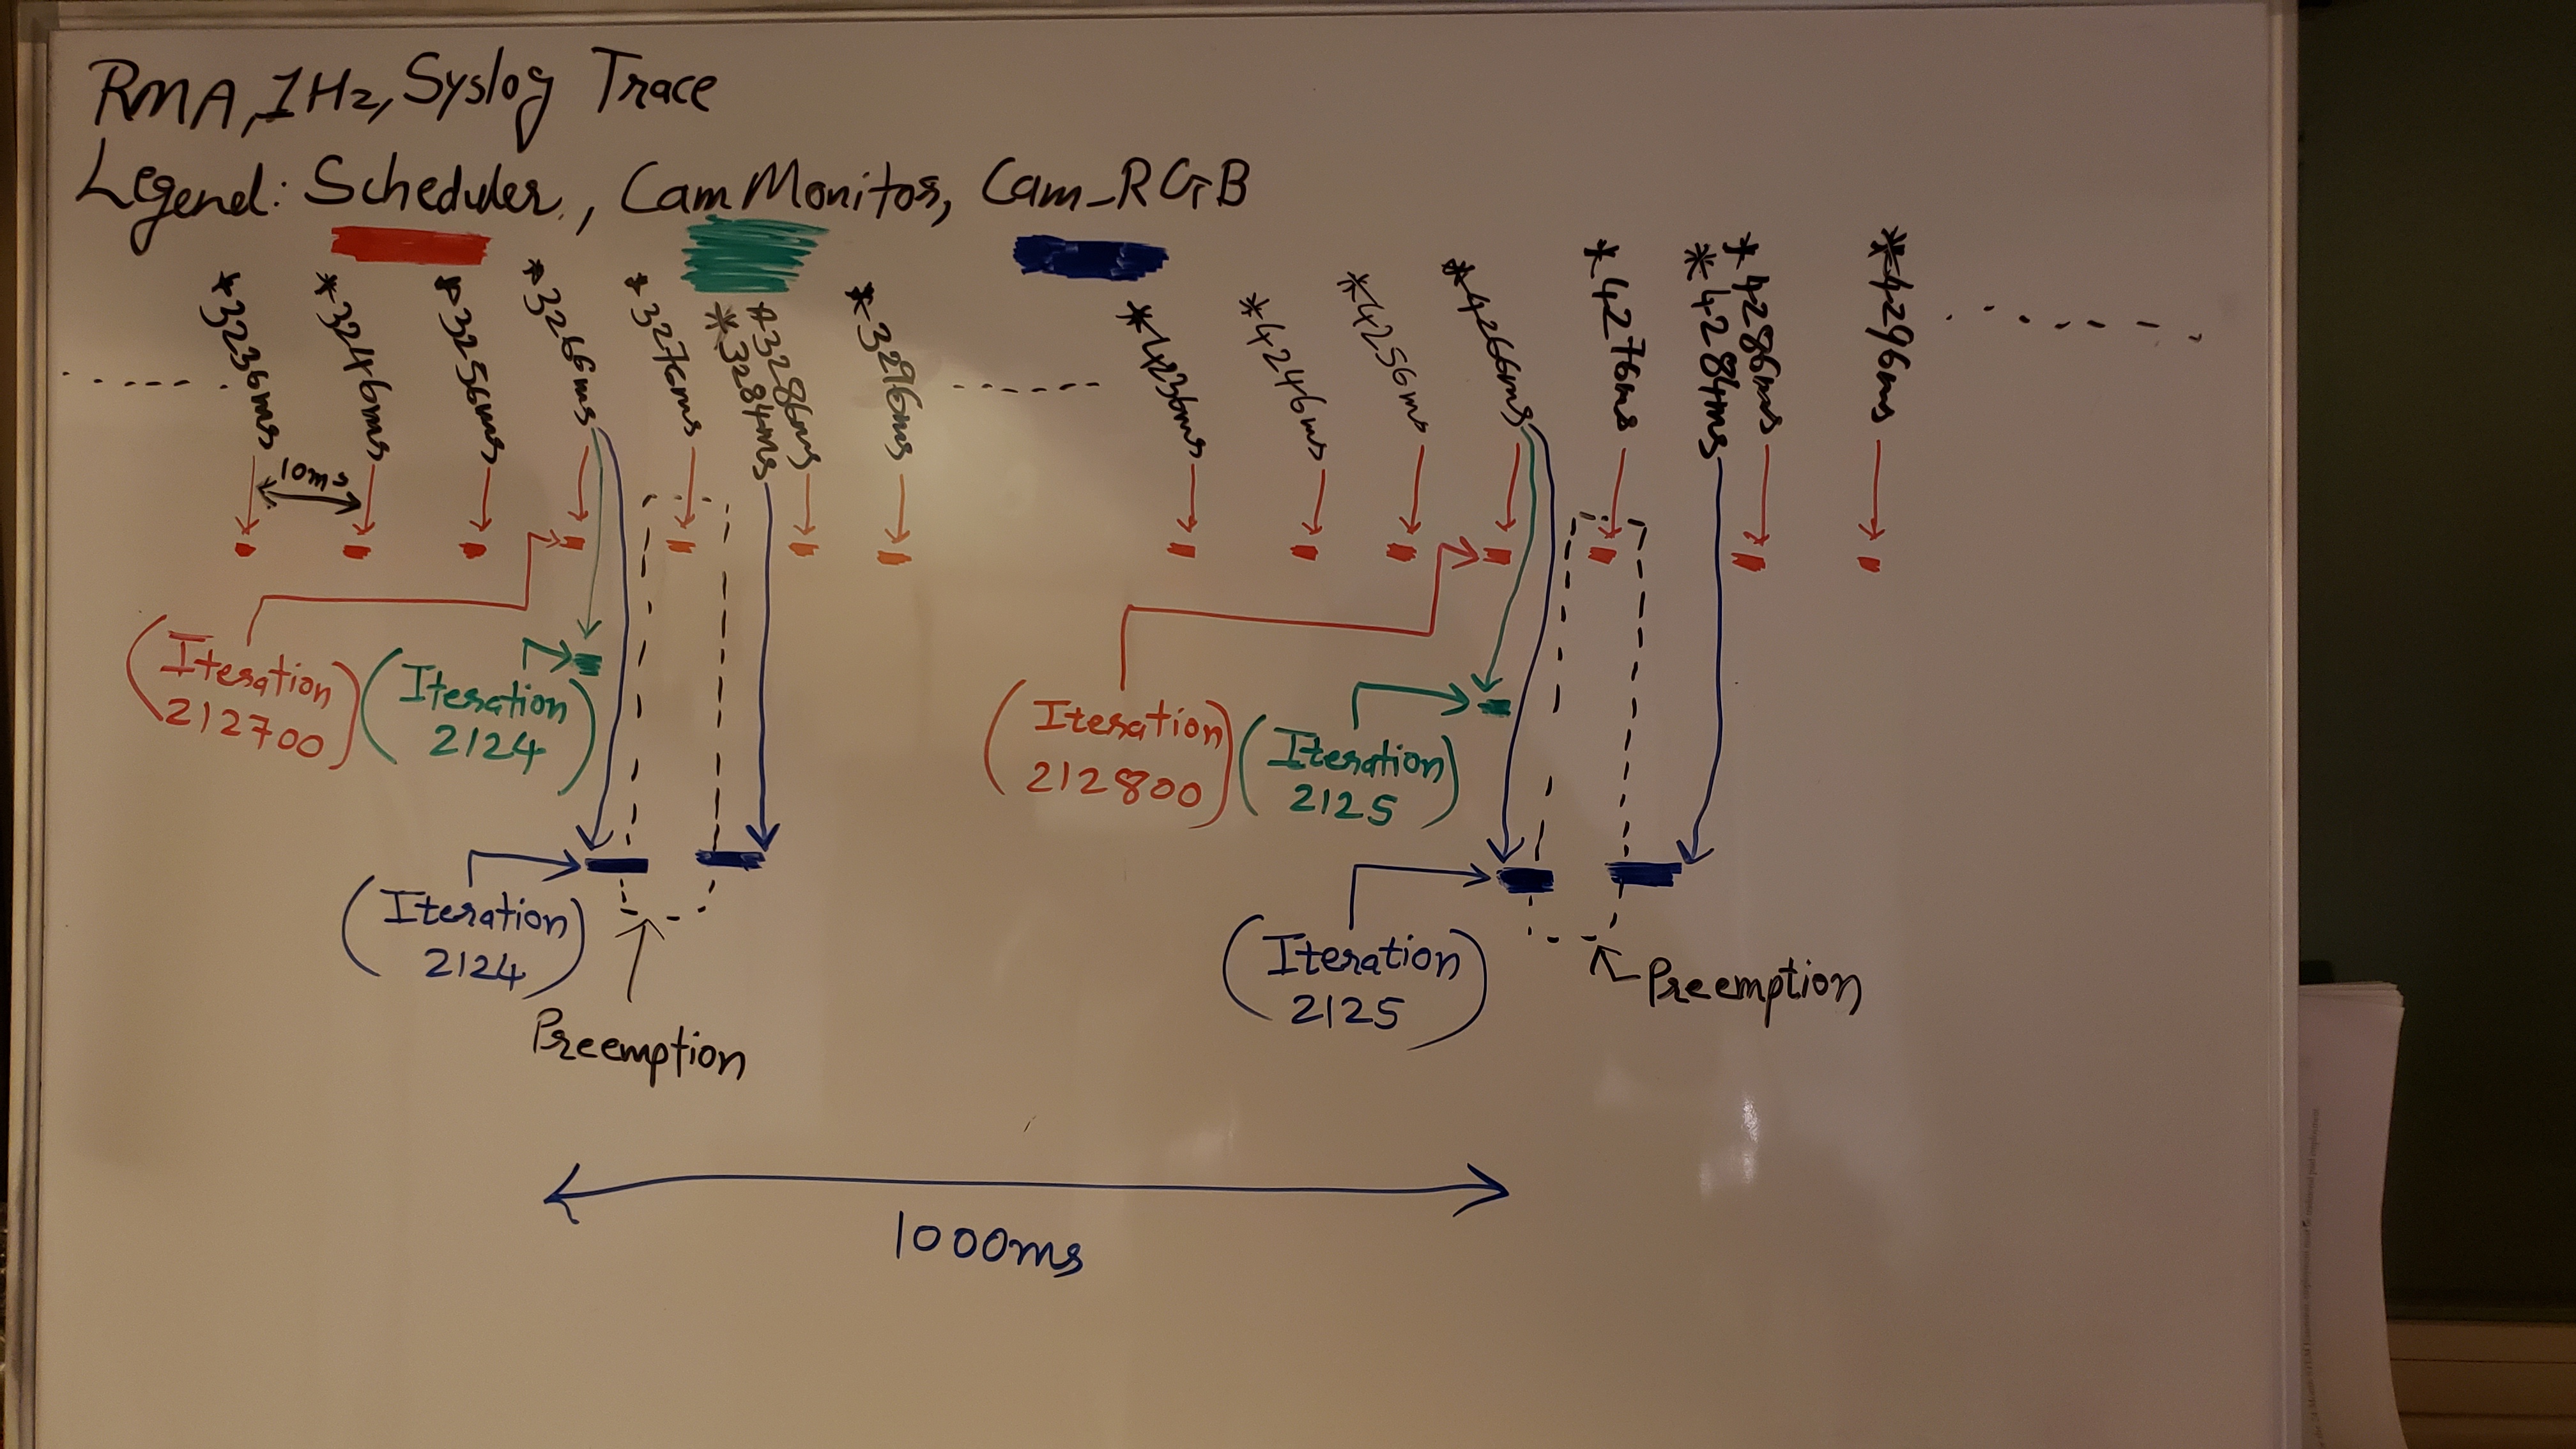 RMA, 1Hz, Syslog Trace
Legend: Scheduler, CamMonitor, Cam_RGB
*3236ms
*3246ms
*3256ms
*3266ms
*3276ms
*3286ms
*3284ms
*3296ms
*4236ms
*4246ms
*4256ms
*4266ms
*4276ms
*4286ms
*4284ms
*4296ms
10ms
(Iteration
212700)
(Iteration
2124)
(Iteration
212800)
(Iteration
2125)
(Iteration
2124)
(Iteration
2125)
Preemption
Preemption
1000ms